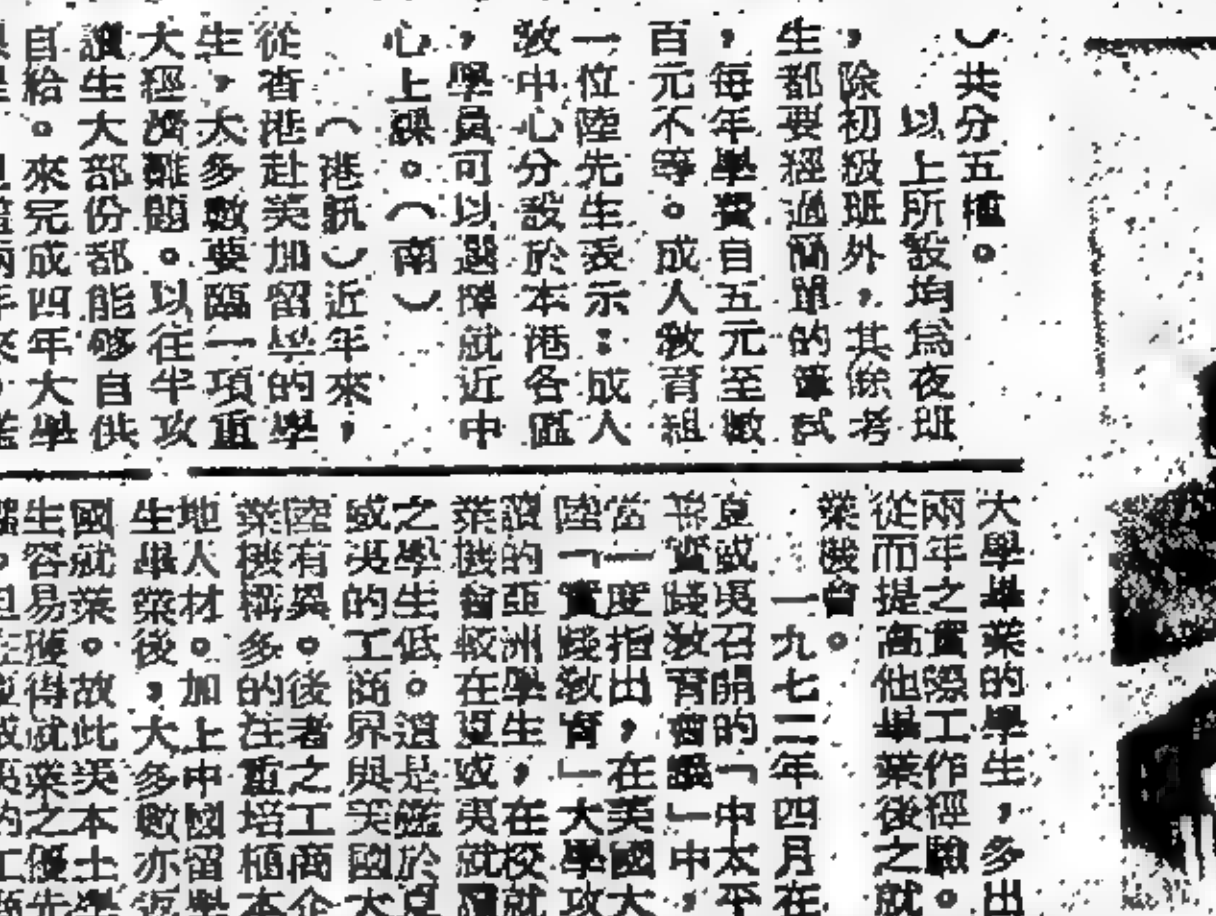 ）共分五種。
以上所設均爲夜班
，除初級班外，其餘考
生都要經過簡單的筆試
，每年學費自五元至數
百元不等。成人敎育組
一位陸先生表示：成人
敎中心分設於本港各區
，學員可以選擇就近中
心上課。（南）
（港訊）近年來，
從香港赴美加留學的學
生，大多數要臨一項重
大經濟難題。以往半攻
讀生大部份都能够自供
自給。來完成四年大學
大學畢業的學生，多出
兩年之實際工作經驗。
從而提高他畢業後之就
業機會。
一九七二年四月在
夏威夷召開的「中太平
洋實踐敎育會議」中，
當一度指出，在美國大
陸「實踐敎育」大學攻
讀的亞洲學生，在校就
業機會較在夏威夷就讀
之學生低。這是鑑於夏
威夷的工商界與美國大
陸有異。後者之工商企
業機構多的注重培植本
地人材。加上中國留學
生畢業後，大多數亦返
國就業。故此美本土學
生容易獲得就業之優先